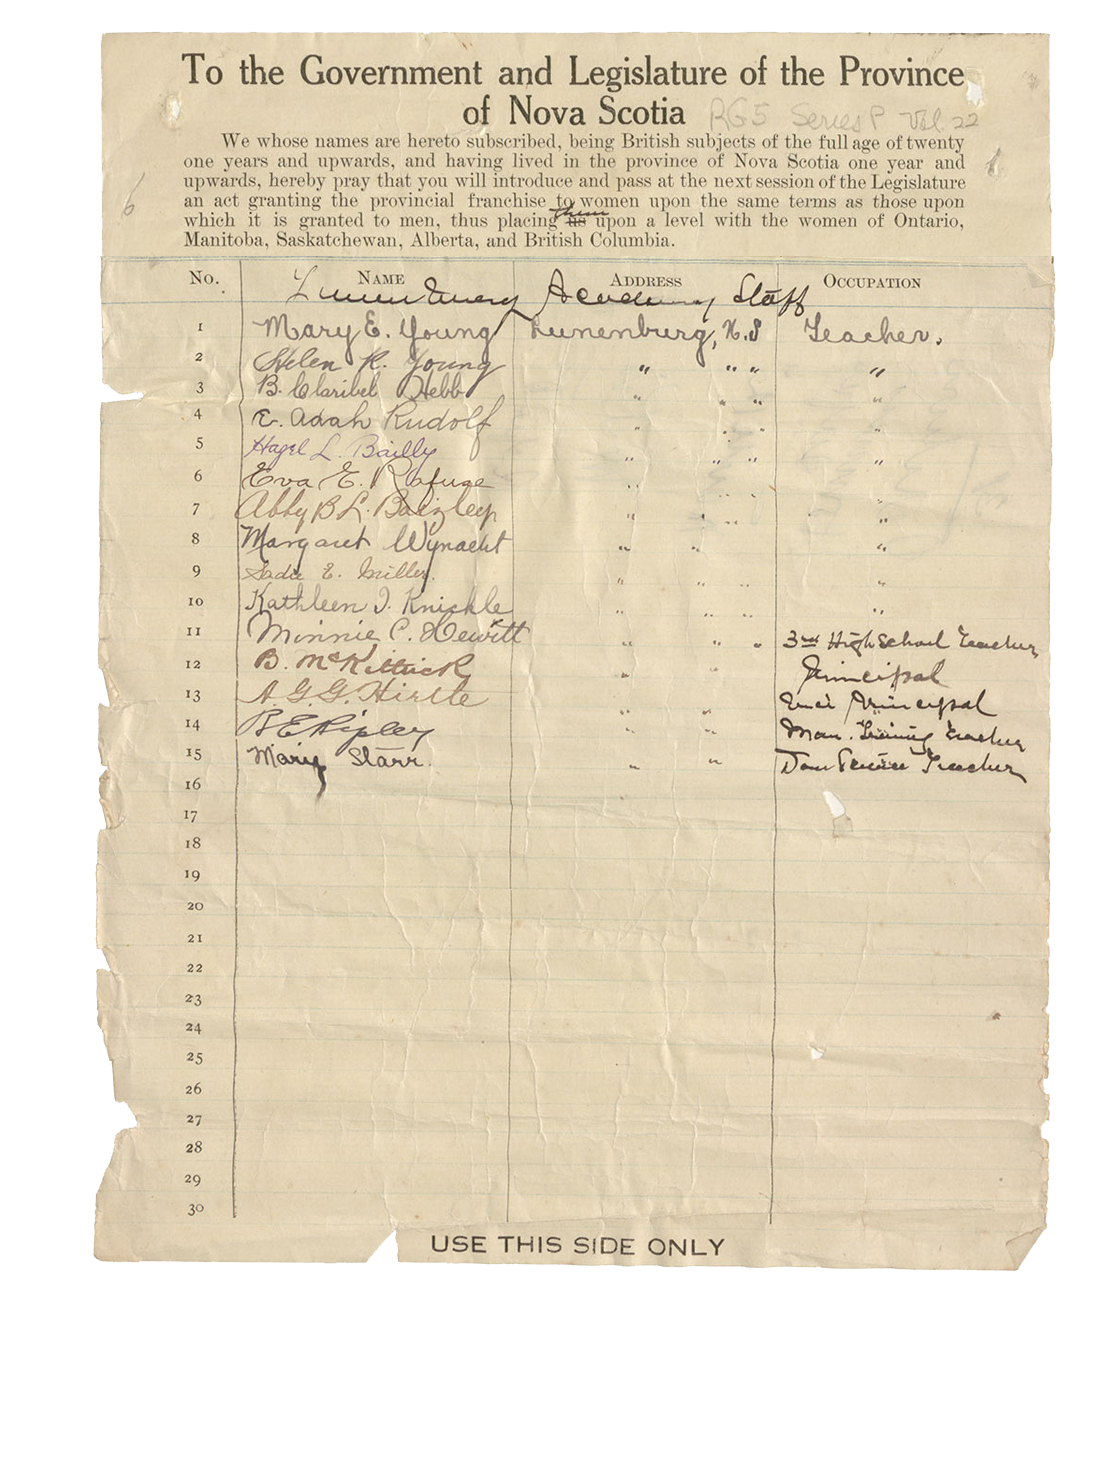 To the Government and Legislature of the Province
of Nova Scotia RG5 Series P Vol. 22
We whose names are hereto subscribed, being British subjects of the full age of twenty
one years and upwards, and having lived in the province of Nova Scotia one year and
upwards, hereby pray that you will introduce and pass at the next session of the Legislature
an act granting the provincial franchise to women upon the same terms as those upon
them
which it is granted to men, thus placing us upon a level with the women of Ontario,
Manitoba, Saskatchewan, Alberta, and British Columbia.
6
No. NAME ADDRESS OCCUPATION
Lunenburg Academy Staff
1 Mary E. Young Lunenburg, N.S Teacher.
2 Helen R. Young " " " "
3 B. Claribel Hebb " " " "
4 E. Adah Rudolf " " " "
5 Hazel L. Bailly " " " "
6 Eva E. Rafuse " " " "
7 Abby B L. Baizley " " " "
8 Margaret Wynacht " " "
9 Sadie E. Miller. " " " "
10 Kathleen I. Knickle " " " "
11 Minnie C. Hewitt " " " 3rd High School Teacher
12 B. McKittrick " " Principal
13 A. G. G. Hirtle " " Principal
14 B E Ripley " " Man. Training Teacher
15 Mary Starr. " " Dom Science Teacher
16
17
18
19
20
21
22
23
24
25
26
27
28
29
30
USE THIS SIDE ONLY